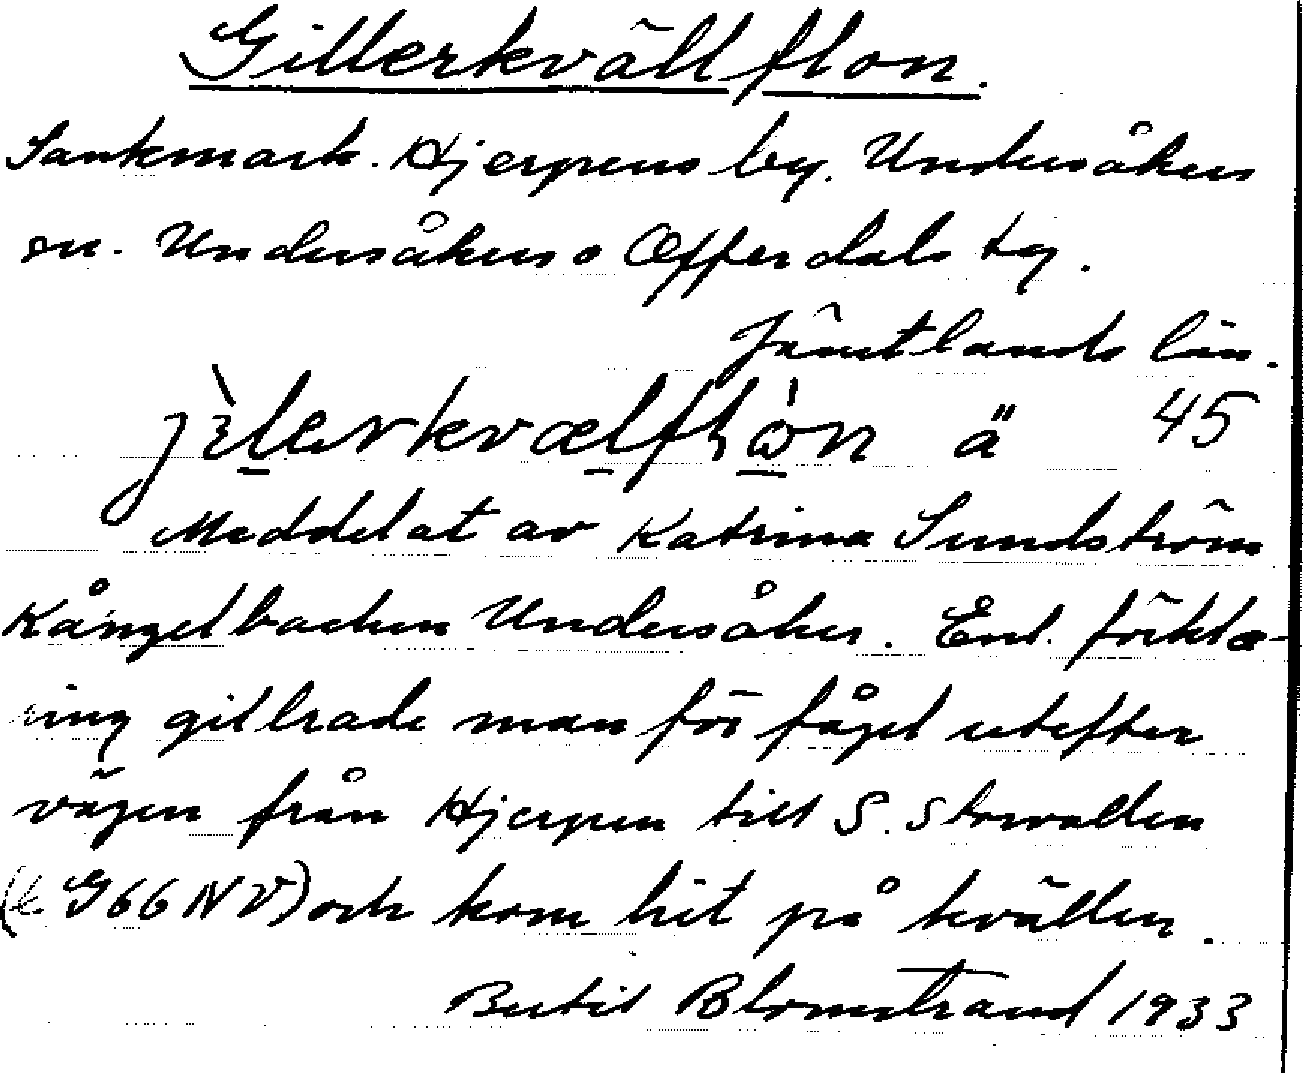 Gillerkvällflon.
Sankmark. Hjerpens by. Undersåkers
sn. Undersåkers o Offerdals tg.
Jämtlands län.
jìlerkvælfḷòn ä 45
Meddelat av Katrina Sundström
Kångelbacken Undersåker. Enl. förkla-
ring gillrade man för fågel utefter
vägen från Hjerpen till S. Storvallen
(k G66NV) och kom hit på kvällen.
Bertil Blomstrand 1933